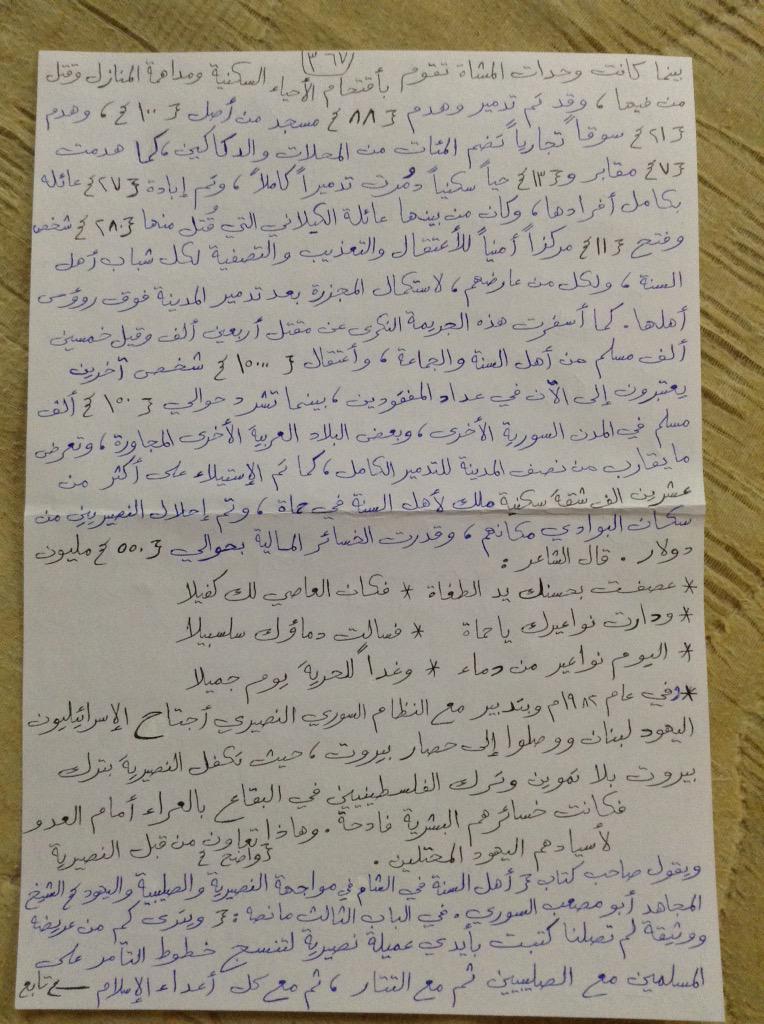 (٣٦٧)
بينما كانت وحدات المشاة تقوم بأقتحام الأحياء السكنية ومداهمة المنازل وقتل
من فيها، وقد تم تدمير وهدم {٨٨} مسجد من أصل {١٠٠}، وهدم
{٢١} سوقاً تجارياً تضم المئات من المحلات والدكاكين، كما هدمت
{٧} مقابر و{١٣} حياً سكنياً دُمرت تدميراً كاملاً، وتم إبادة {٢٧} عائله
بكامل أفرادها، وكان من بينها عائلة الكيلاني التي قُتل منها {٢٨٠} شخص
وفتح {١١} مركزاً أمنياً للأعتقال والتعذيب والتصفية لكل شباب أهل
السنة، ولكل من عارضهم، لاستكمال المجزرة بعد تدمير المدينة فوق رووؤس
أهلها. كما أسفرت هذه الجريمة النكرى عن مقتل أربعين ألف وقيل خمسين
ألف مسلم من أهل السنة والجماعة، وأعتقال {١٥٠٠٠} شخص آخرين
يعتبرون إلى الآن في عداد المفقودين، بينما تشرد حوالي {١٥٠} ألف
مسلم في المدن السورية الأخرى، وبعض البلاد العربية الأخرى المجاورة، وتعرض
ما يقارب من نصف المدينة للتدمير الكامل، كما تم الإستيلاء على أكثر من
عشرين الف شقة سكنية ملك لأهل السنة في حماة، وتم إحلال النصيريين من
سكان البوادي مكانهم، وقدرت الخسائر المالية بحوالي {٥٥٠} مليون
دولار. قال الشاعر:
* عصفت بحسنك يد الطغاة * فكان العاصي لك كفيلا
* ودارت نواعيرك يا حماة * فسالت دماؤك سلسبيلا
* اليوم نواعير من دماء * وغداً للحرية يوم جميلا
* وفي عام ١٩٨٢م وبتدبير مع النظام السوري النصيري أجتاح الإسرائيليون
اليهود لبنان ووصلوا إلى حصار بيروت، حيث تكفل النصيرية بترك
بيروت بلا تموين وترك الفلسطينيين في البقاع بالعراء أمام العدو
فكانت خسائرهم البشرية فادحة. وهاذا تعاون {واضح} من قبل النصيرية
لأسيادهم اليهود المحتلين.
ويقول صاحب كتاب {أهل السنة في الشام في مواجهة النصيرية والصليبية واليهود} الشيخ
المجاهد أبو مصعب السوري. في الباب الثالث مانصه: {ويترى كم من عريضه
ووثيقة لم تصلنا كتبت بأيدي عميلة نصيرية لتنسج خطوط التآمر على
المسلمين مع الصليبيين ثم مع التتار، ثم مع كل أعداء الإسلام ← تابع